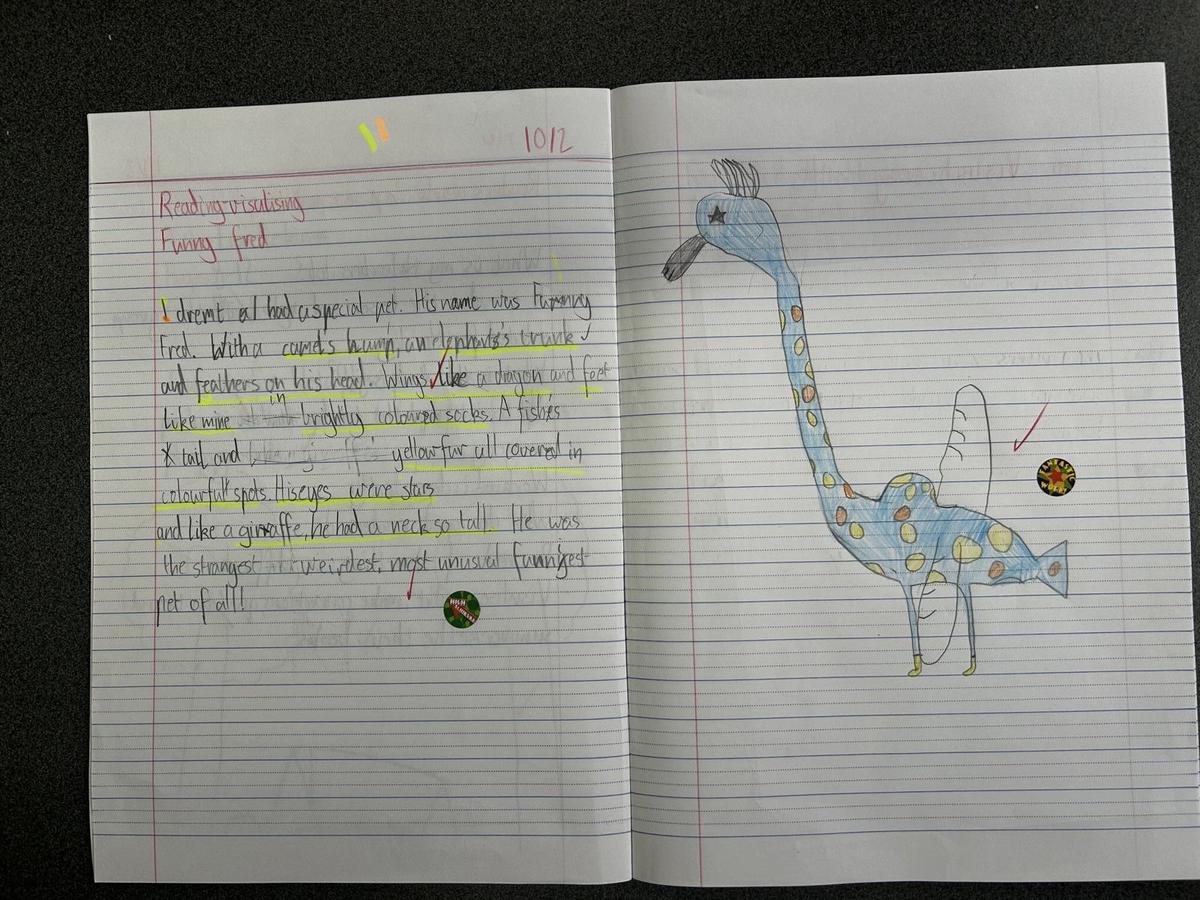 10/2
Reading-visulising
Funny fred
I dremt I had a special pet. His name was Funny
Fred. With a camel's hump, an elephants's trunk
and feathers on his head. Wings like a dragon and feet
like mine in brightly coloured socks. A fishes
tail and yellow fur all covered in
colourful spots. His eyes were stars
and like a giraffe, he had a neck so tall. He was
the strangest weirdest, most unusual funniest
pet of all!
FANTASTIC
WORK
HIGH